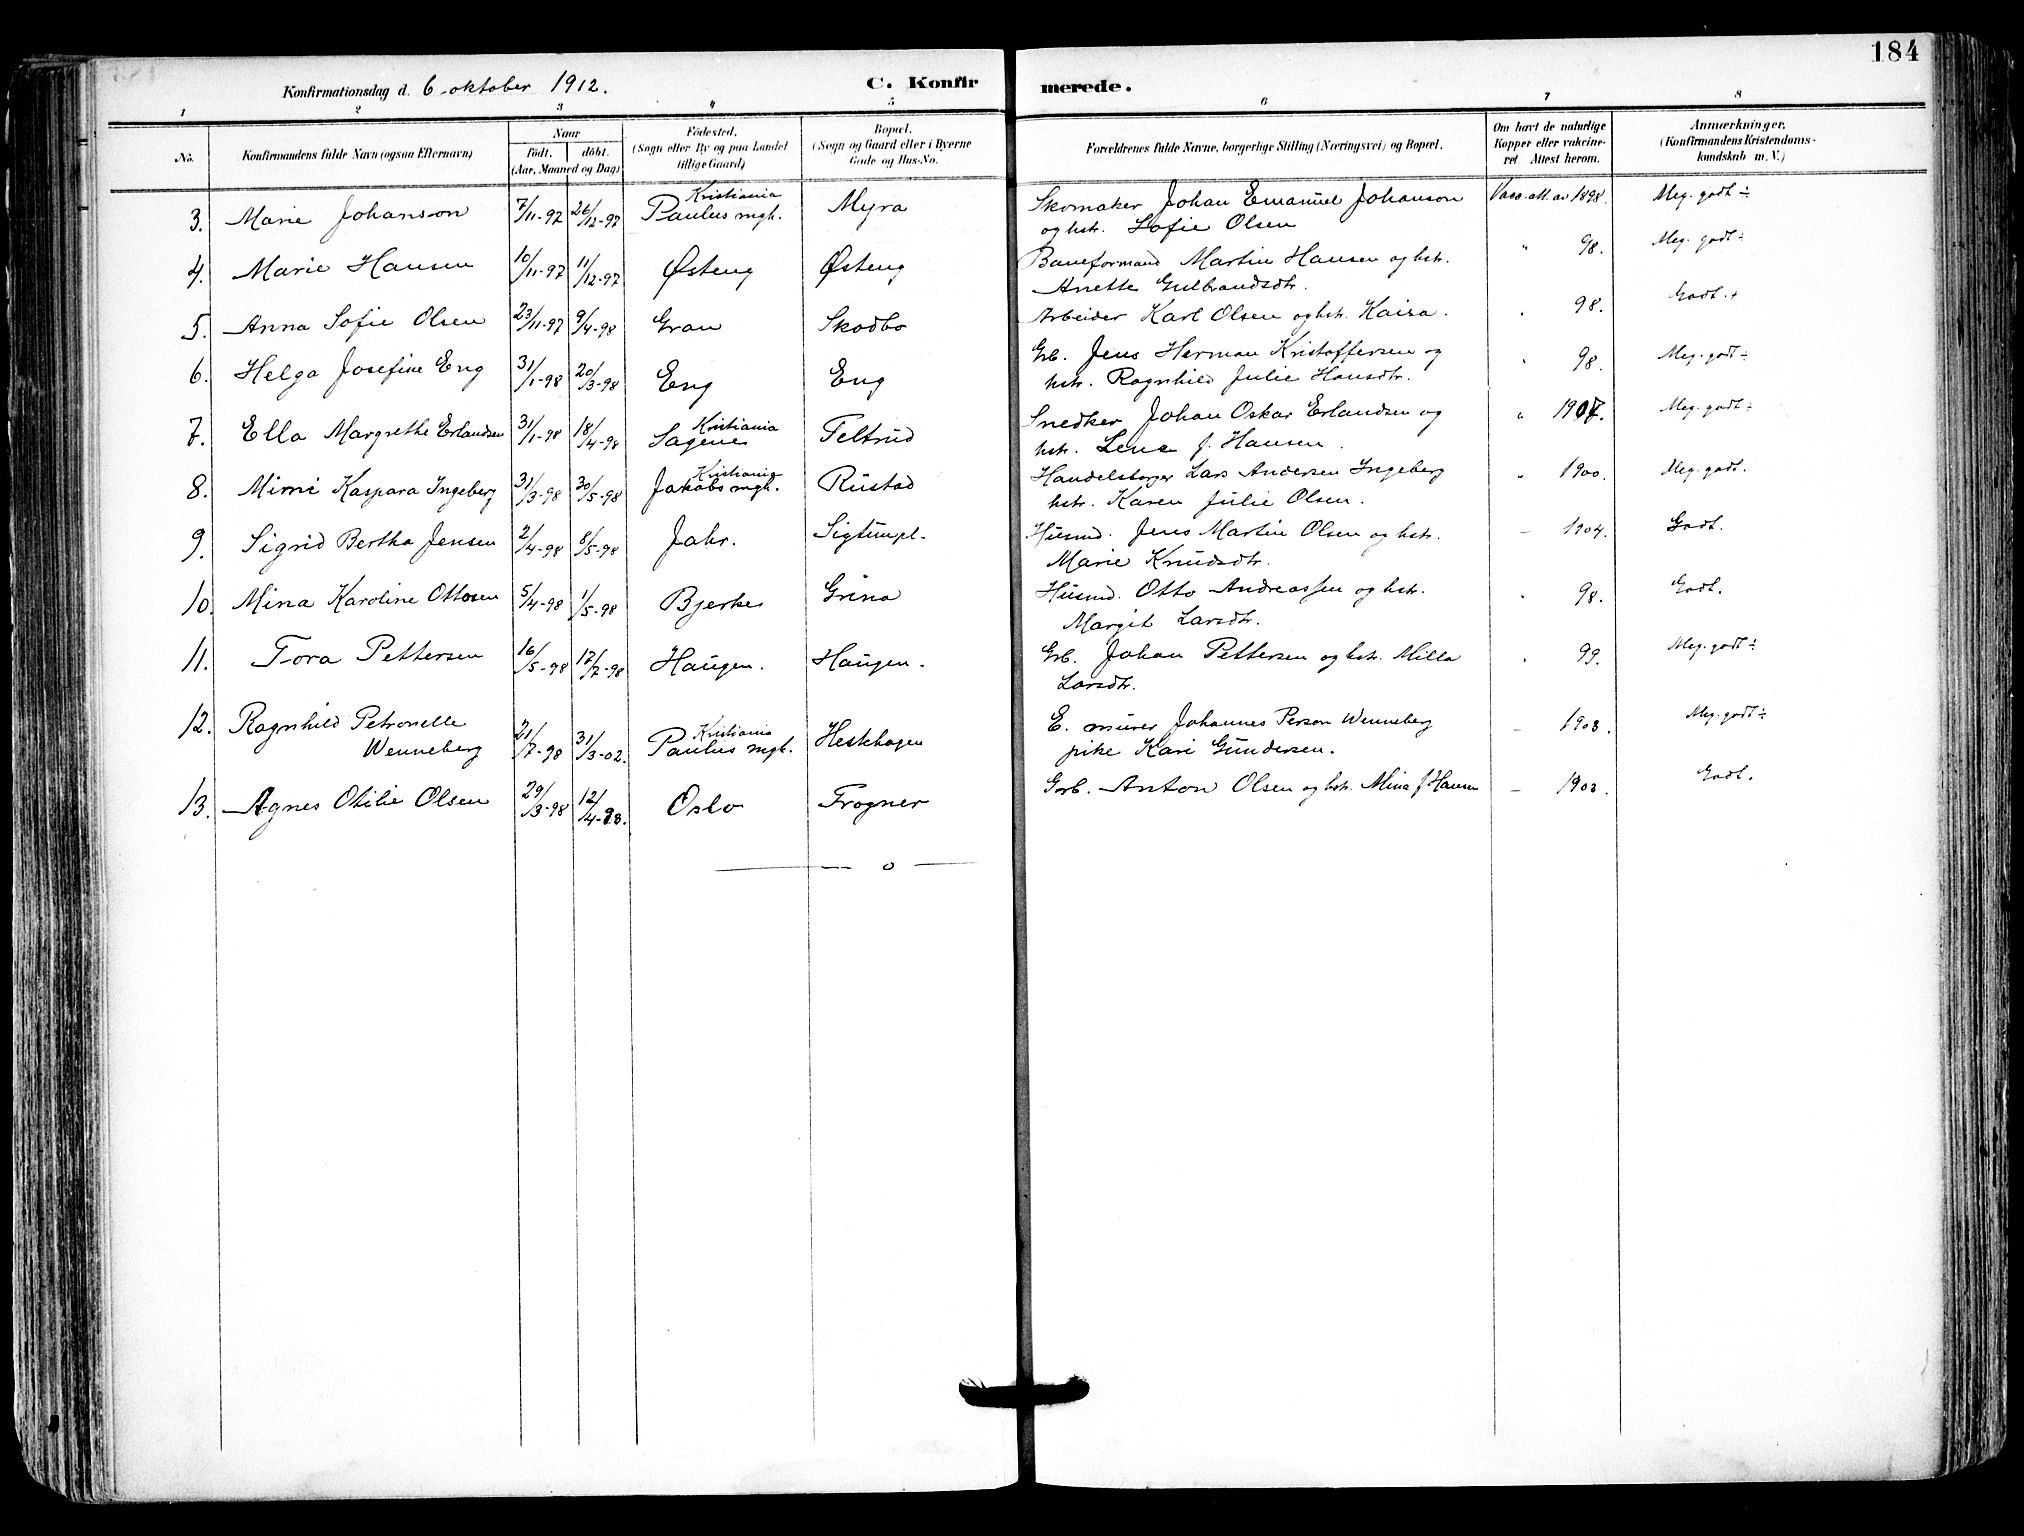 184
Konfirmationsdag d. 6 oktober 1912.
C. Konfirmerede.
1 2 3 4 5 6 7 8
No.
Konfirmandens fulde Navn (ogsaa Efternavn)
Naar
født. døbt.
(Aar, Maaned og Dag)
Fødested.
(Sogn eller By og paa Landet
tillige Gaard)
Bopæl.
(Sogn og Gaard eller i Byerne
Gade og Hus-No.
Forældrenes fulde Navne, borgerlige Stilling (Næringsvei) og Bopæl.
Om havt de naturlige
Kopper eller vakcine-
ret. Attest herom.
Anmærkninger.
(Konfirmandens Kristendoms-
kundskab m. V.)
3. Marie Johanson 7/11-97 26/12-97 Kristiania Paulus mgh. Myra Skomaker Johan Emanuel Johanson Vacc. att. av 1898. Meg. godt ÷
og hst. Sofie Olsen
4. Marie Hansen 10/11-97 11/12-97 Østeng Østeng Baneformand Martin Hansen og hst. " 98. Meg. godt ÷
Anette Gulbrandsdtr.
5. Anna Sofie Olsen 23/11-97 9/4-98 Gran Skodbo Arbeider Karl Olsen og hst. Kaisa. " 98. Godt. +
6. Helga Josefine Eng 31/1-98 20/3-98 Eng Eng Grb. Jens Herman Kristoffersen og " 98. Meg. godt ÷
hst. Ragnhild Julie Hansdtr.
7. Ella Margrethe Erlandsen 31/1-98 18/4-98 Kristiania Sagenes Feltrud Snedker Johan Oskar Erlandsen og " 1907. Meg. godt ÷
hst. Lene f. Hansen.
8. Mimi Kaspara Ingeberg 31/3-98 30/5-98 Kristiania Jakobs mgh. Rustad Handelsborger Lars Andersen Ingeberg " 1900. Meg. godt.
hst. Karen Julie Olsen.
9. Sigrid Bertha Jensen 2/4-98 8/5-98 Jahr. Sigtunpl. Husmd. Jens Martin Olsen og hst. – 1904. Godt.
Marie Knudsdtr.
10. Mina Karoline Ottosen 5/4-98 1/5-98 Bjerke Grina Husmd. Otto Andreassen og hst. " 98. Godt.
Margit Larsdtr.
11. Tora Pettersen 16/5-98 17/7-98 Haugen. Haugen. Grb. Johan Pettersen og hst. Milla " 99. Meg. godt ÷
Larsdtr.
12. Ragnhild Petronelle E. murer Johannes Person Wenneberg – 1903. Meg. godt ÷
Wenneberg 21/7-98 31/3-02. Kristiania Paulus mgh. Hestehagen pike Kari Gundersen.
13. Agnes Otilie Olsen 29/3-98 12/4-98. Oslo Frogner Grb. Anton Olsen og hst. Mina f. Hansen – 1903. Godt.
— o —